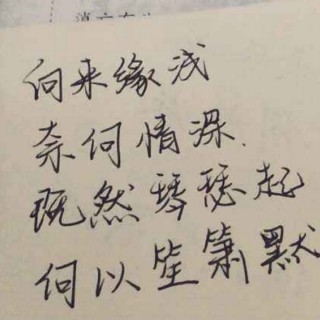 向来缘浅
奈何情深.
既然琴瑟起
何以笙箫默